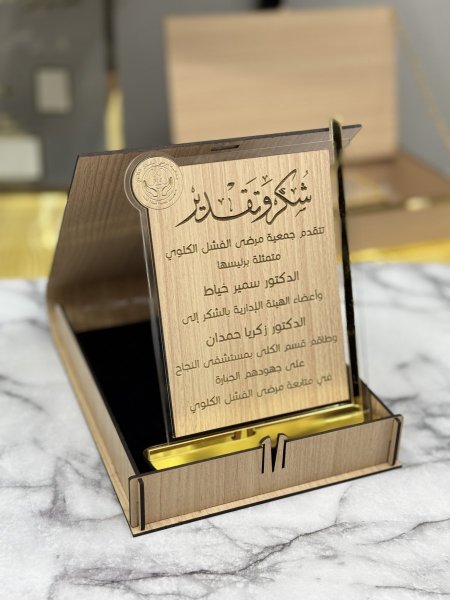 شكر وتقدير
تتقدم جمعية مرضى الفشل الكلوي
متمثلة برئيسها
الدكتور سمير خياط
وأعضاء الهيئة الإدارية بالشكر إلى
الدكتور زكريا حمدان
وطاقم قسم الكلى بمستشفى النجاح
على جهودهم الجبارة
في متابعة مرضى الفشل الكلوي